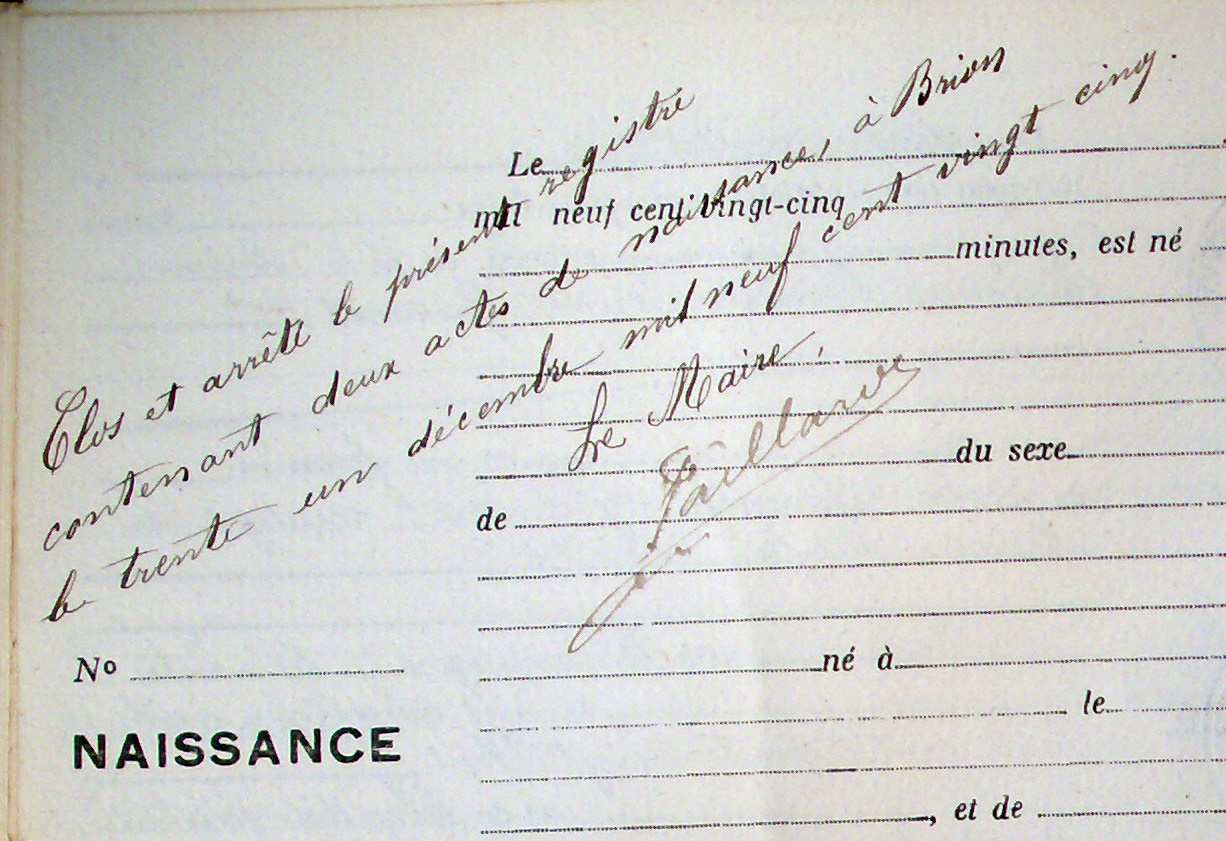 Clos et arrêté le présent registre
contenant deux actes de naissance, à Brion
le trente un décembre mil neuf cent vingt cinq.
Le Maire,
Le
mil neuf cent vingt-cinq
minutes, est né
du sexe
de
né à
le
, et de
No
NAISSANCE